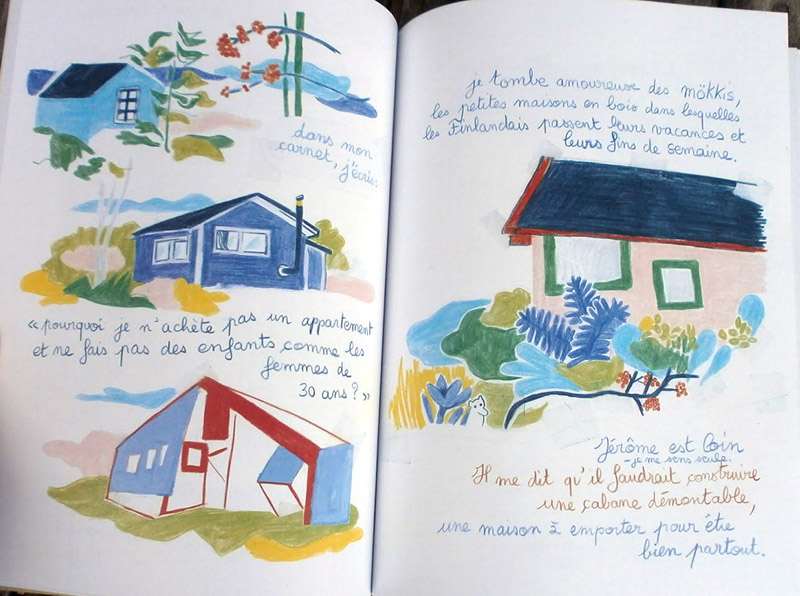 dans mon
carnet, j'écris:
« pourquoi je n'achète pas un appartement
et ne fais pas des enfants comme les
femmes de
30 ans ? »
je tombe amoureuse des mökkis,
les petites maisons en bois dans lesquelles
les Finlandais passent leurs vacances et
leurs fins de semaine.
Jérôme est loin
- je me sens seule.
Il me dit qu'il faudrait construire
une cabane démontable,
une maison à emporter pour être
bien partout.